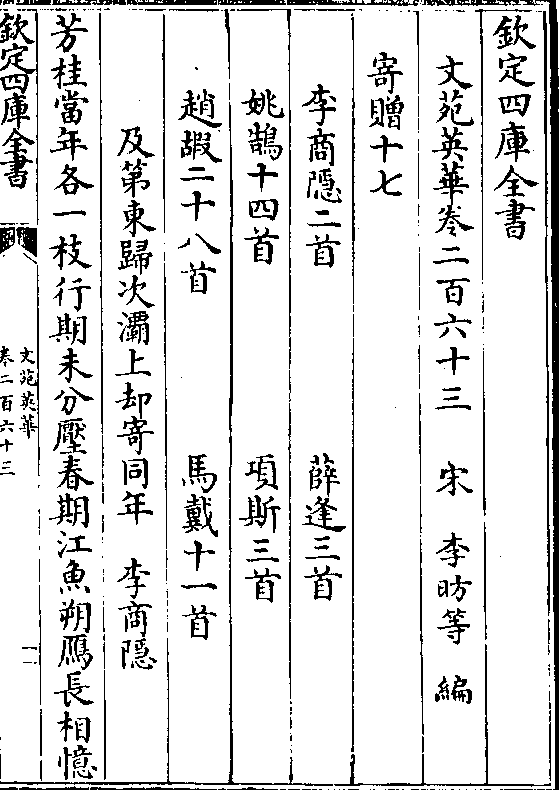 欽定四庫全書
文苑英華卷二百六十三　宋　李昉等　編
寄贈十七
李商隱二首　薛逢三首
姚鵠十四首　項斯三首
趙嘏二十八首　馬戴十一首
及第東歸次灞上却寄同年　李商隱
芳桂當年各一枝行期未分壓春期江魚朔鴈長相憶
欽定四庫全書
文苑英華
卷二百六十三
一